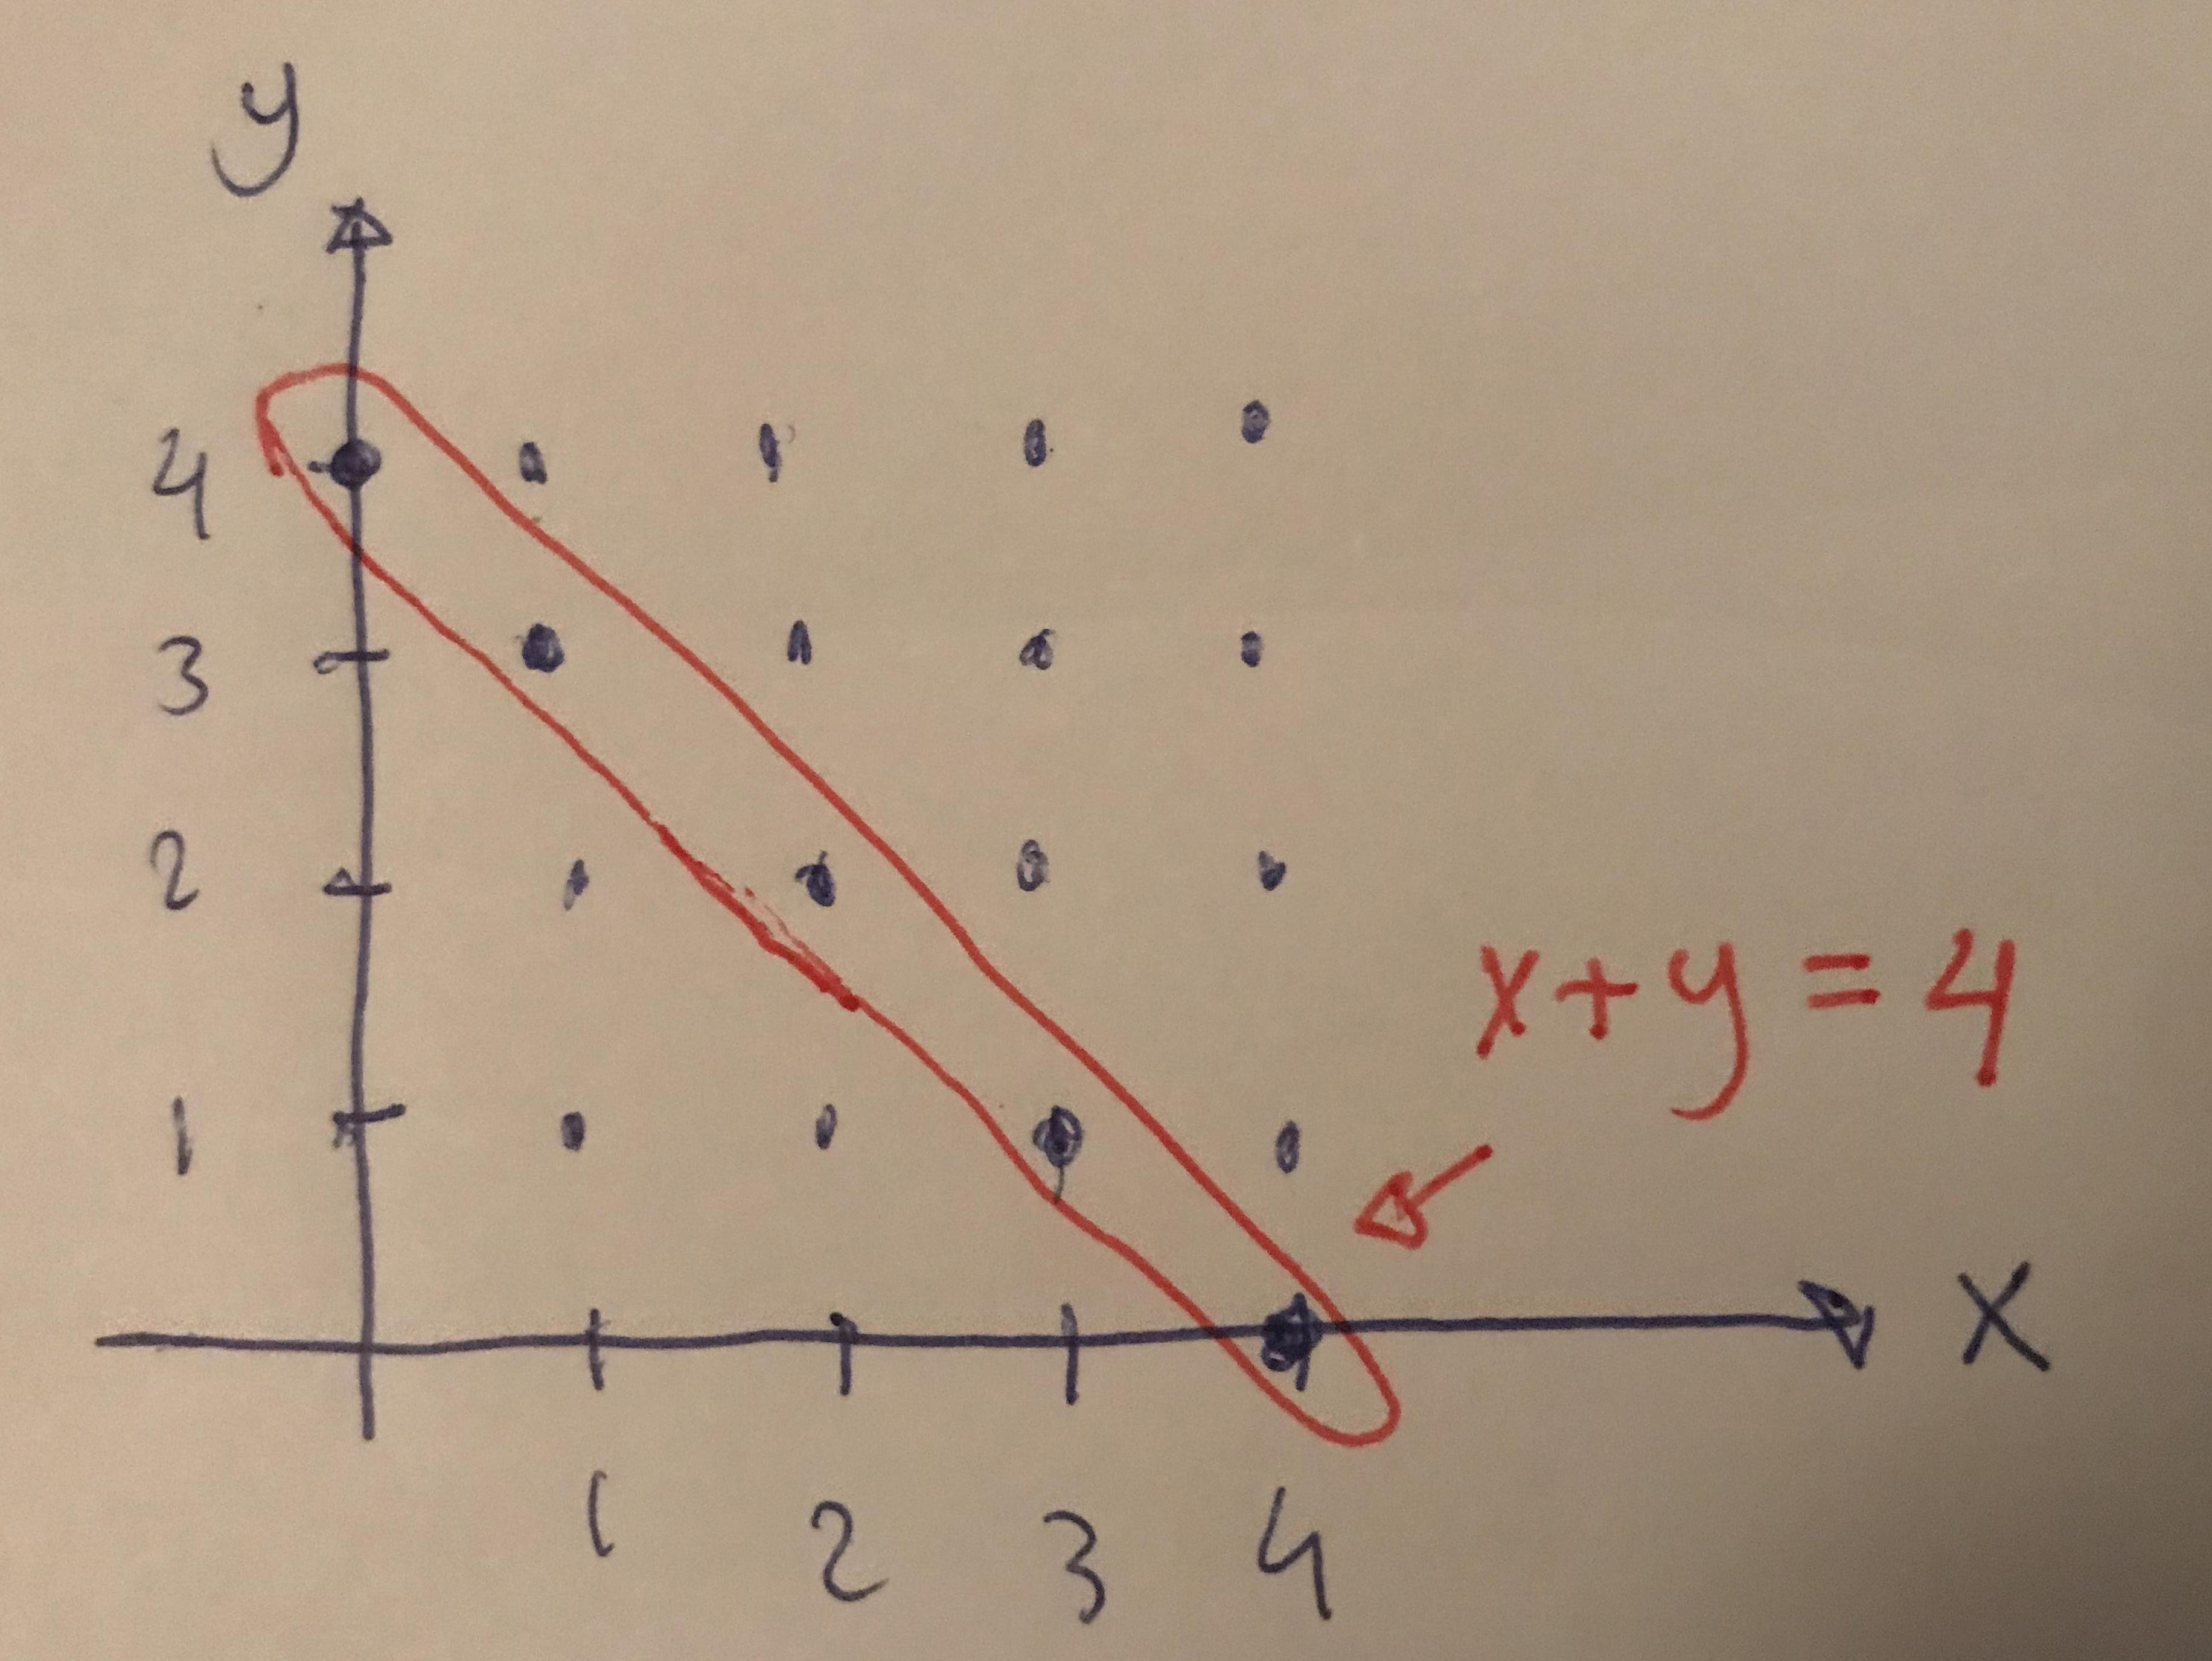 y
4
3
2
1
x+y=4
X
1 2 3 4